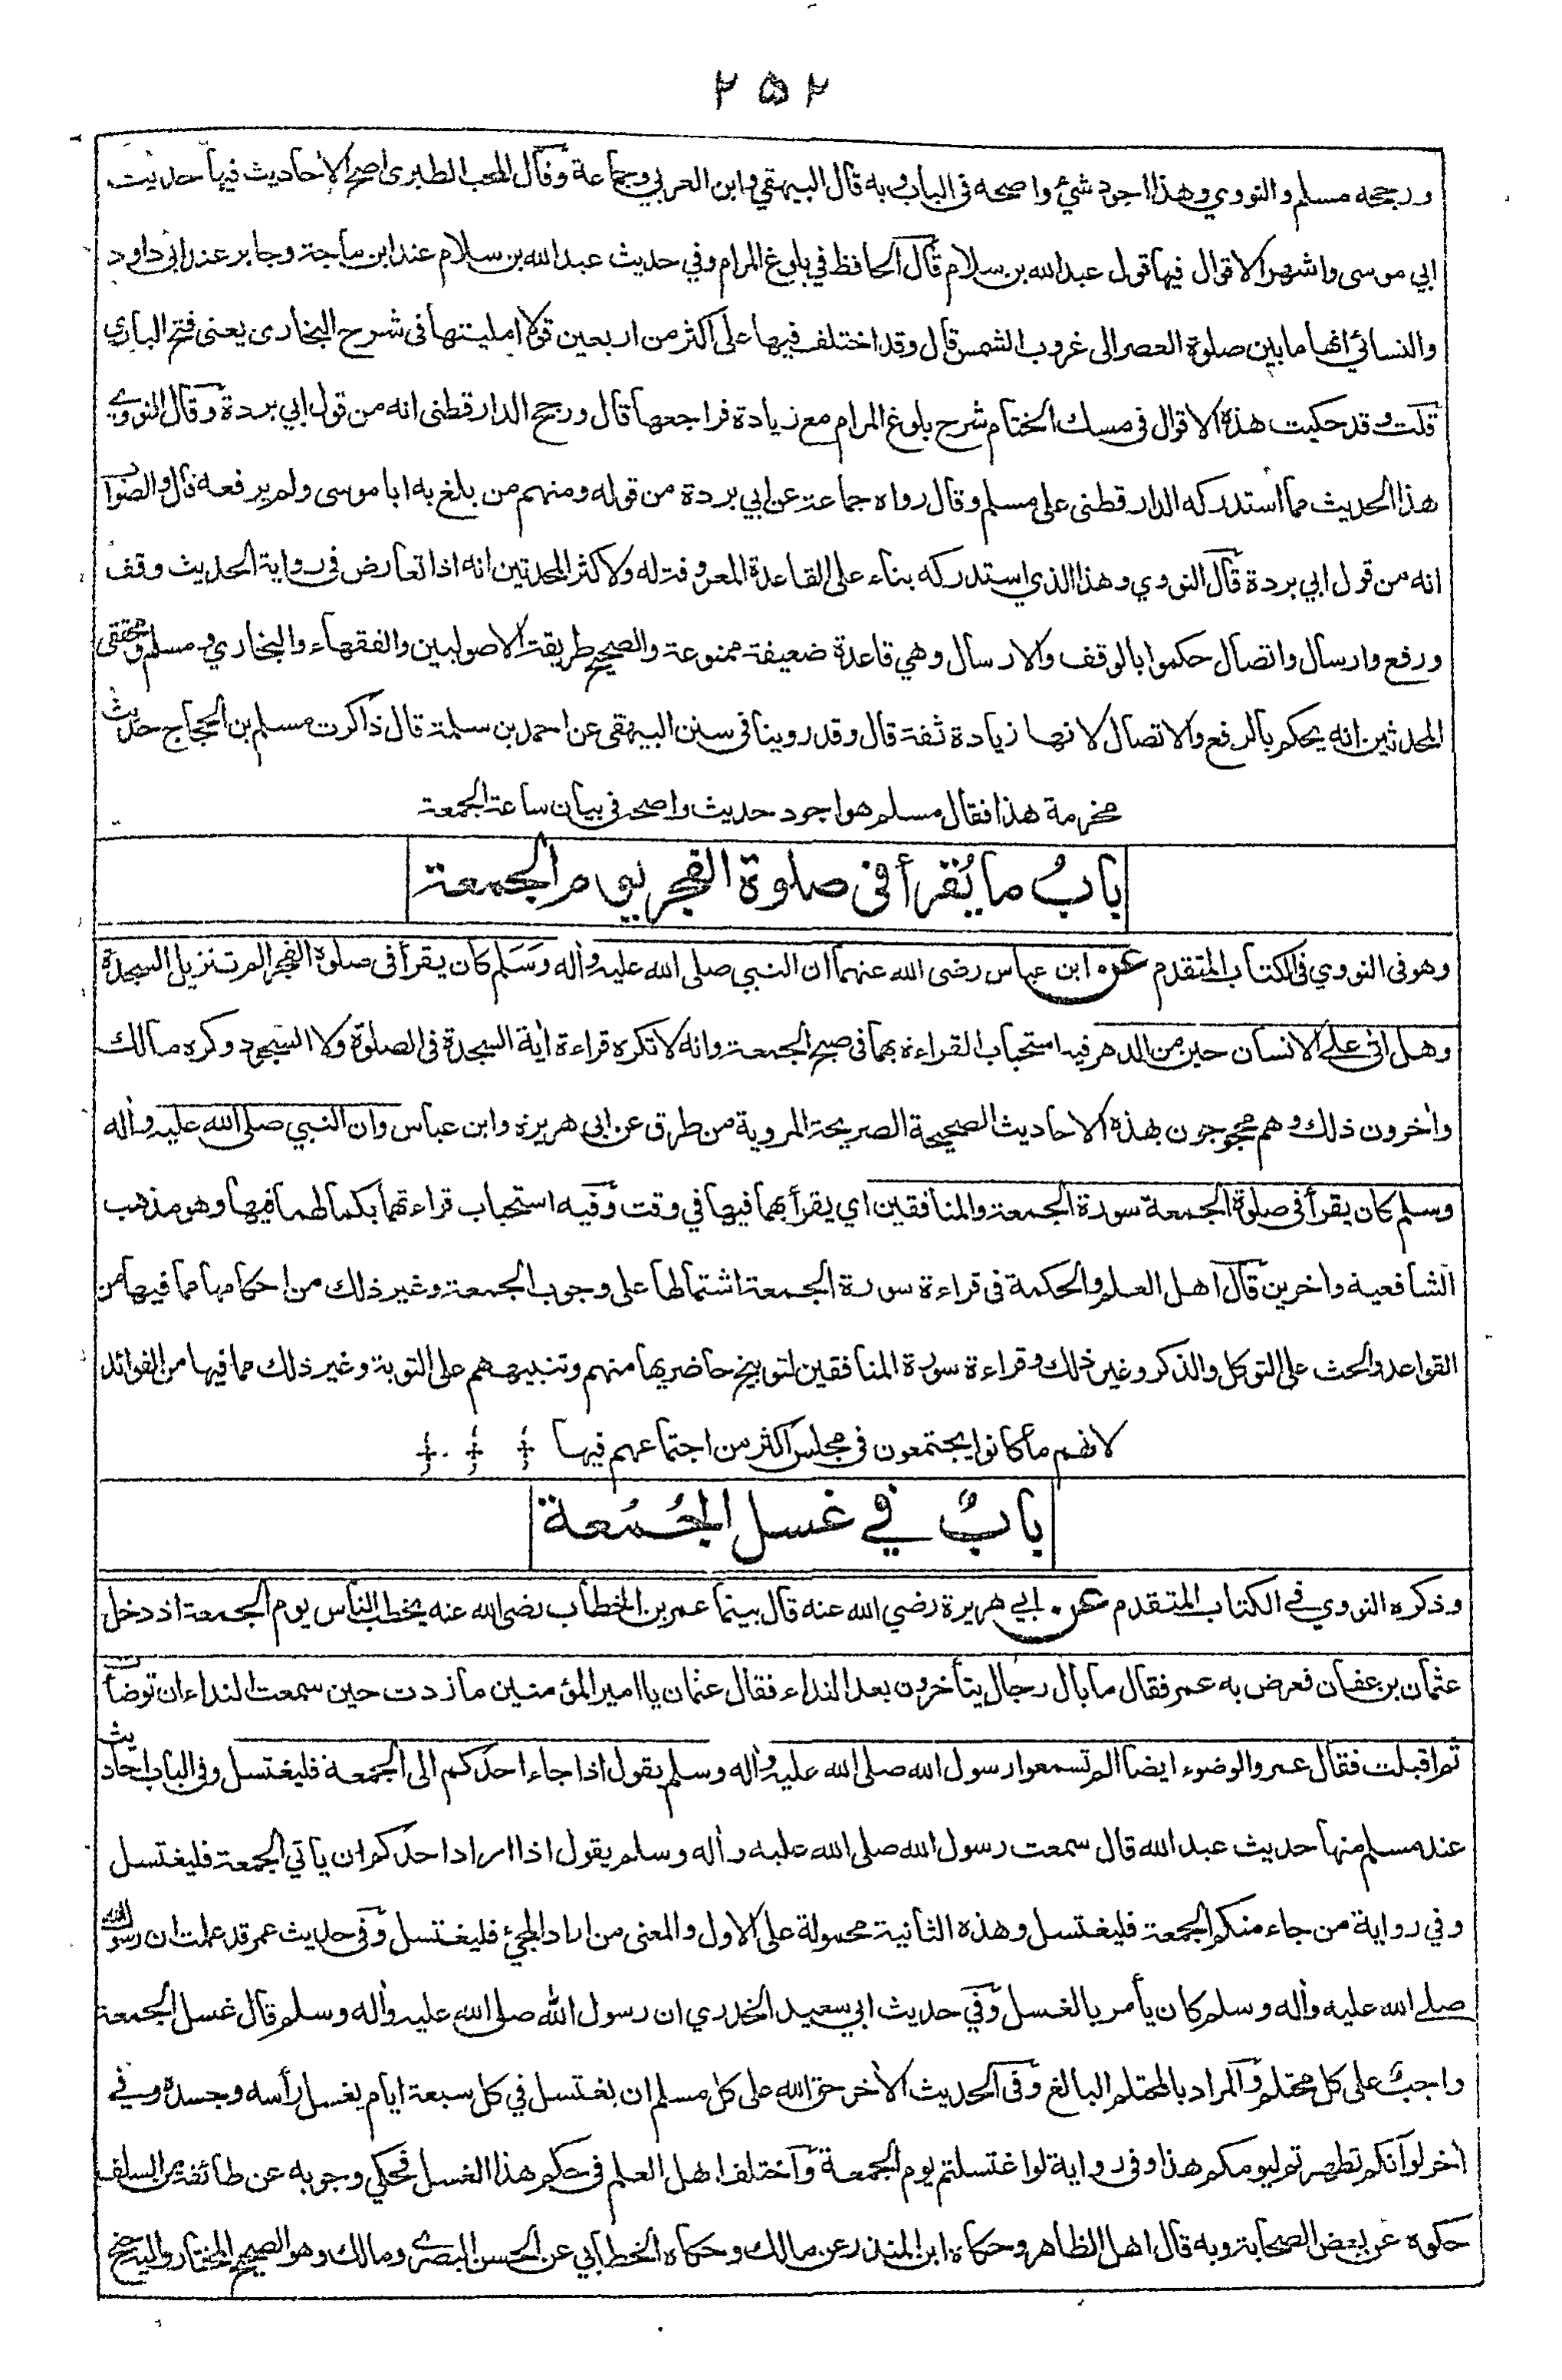 ۲۵۲
ورجحه مسلم والنووي وهذا اجود شيء واصحه في الباب وبه قال البيهقي وابن العربي وجماعة وقال المحب الطبري اصح الاحاديث فيها حديث
ابي موسى واشهر الاقوال فيها قول عبد الله بن سلام قال الحافظ في بلوغ المرام وفي حديث عبد الله بن سلام عند ابن ماجة وجابر عند ابي داود
والنسائي انها ما بين صلوة العصر الى غروب الشمس قال وقد اختلف فيها على اكثر من اربعين قولا امليتها في شرح البخاري يعني فتح الباري
قلت وقد حكيت هذه الاقوال في مسك الختام شرح بلوغ المرام مع زيادة فراجعها قال ورجح الدارقطني انه من قول ابي بردة وقال النووي
هذا الحديث مما استدركه الدارقطني على مسلم وقال رواه جماعة عن ابي بردة من قوله ومنهم من بلغ به ابا موسى ولم يرفعه قال والصواب
انه من قول ابي بردة قال النووي وهذا الذي استدركه بناء على القاعدة المعروفة له ولاكثر المحدثين انه اذا تعارض في رواية الحديث وقف
ورفع وارسال واتصال حكموا بالوقف والارسال وهي قاعدة ضعيفة ممنوعة والصحيح طريقة الاصوليين والفقهاء والبخاري ومسلم ومحققي
المحدثين انه يحكم بالرفع والاتصال لانها زيادة ثقة قال وقد روينا في سنن البيهقي عن احمد بن سلمة قال ذاكرت مسلم بن الحجاج حديث
مخرمة هذا فقال مسلم هو اجود حديث واصحه في بيان ساعة الجمعة
بابُ ما يُقرأ في صلوة الفجر يوم الجمعة
وهو في النووي في الكتاب المتقدم عن ابن عباس رضى الله عنهما ان النبي صلى الله عليه وأله وَسَلم كان يقرأ في صلوة الفجر الم تنزيل السجدة
وهل اتى على الانسان حين من الدهر فيه استحباب القراءة بهما في صبح الجمعة وانه لا تكره قراءة أية السجدة في الصلوة ولا السجود وكره مالك
وأخرون ذلك وهم محجوجون بهذه الاحاديث الصحيحة الصريحة المروية من طرق عن ابي هريرة وابن عباس وان النبي صلى الله عليه وأله
وسلم كان يقرأ في صلوة الجمعة سورة الجمعة والمنافقين اي يقرأ بهما فيها في وقت وفيه استحباب قراءتهما بكمالهما فيها وهو مذهب
الشافعية واخرين قال اهل العلم والحكمة في قراءة سورة الجمعة اشتمالها على وجوب الجمعة وغير ذلك من احكامها مما فيها من
القواعد والحث على التوكل والذكر وغير ذلك وقراءة سورة المنافقين لتوبيخ حاضريها منهم وتنبيههم على التوبة وغير ذلك مما فيها من الفوائد
لانهم ما كانوا يجتمعون في مجلس اكثر من اجتماعهم فيها
بابٌ في غسل الجُمُعة
وذكره النووي في الكتاب المتقدم عن ابي هريرة رضي الله عنه قال بينما عمر بن الخطاب رضى الله عنه يخطب الناس يوم الجمعة اذ دخل
عثمان بن عفان فعرض به عمر فقال ما بال رجال يتأخرون بعد النداء فقال عثمان يا امير المؤمنين ما زدت حين سمعت النداء ان توضأت
ثم اقبلت فقال عمر والوضوء ايضا الم تسمعوا رسول الله صلى الله عليه وأله وسلم يقول اذا جاء احدكم الى الجمعة فليغتسل وفي الباب احاديث
عند مسلم منها حديث عبد الله قال سمعت رسول الله صلى الله عليه وأله وسلم يقول اذا اراد احدكم ان يأتي الجمعة فليغتسل
وفي رواية من جاء منكم الجمعة فليغتسل وهذه الثانية محمولة على الاول والمعنى من اراد المجئ فليغتسل وفي حديث عمر قد علمت ان رسول الله
صلى الله عليه وأله وسلم كان يأمر بالغسل وفي حديث ابي سعيد الخدري ان رسول الله صلى الله عليه وأله وسلم قال غسل الجمعة
واجبٌ على كل محتلم والمراد بالمحتلم البالغ وفي الحديث الأخر حق الله على كل مسلم ان يغتسل في كل سبعة ايام يغسل رأسه وجسده وفي
أخر لو انكم تطهرتم ليومكم هذا وفي رواية لو اغتسلتم يوم الجمعة واختلف اهل العلم في حكم هذا الغسل فحكي وجوبه عن طائفة من السلف
حكوه عن بعض الصحابة وبه قال اهل الظاهر وحكاه ابن المنذر عن مالك وحكاه الخطابي عن الحسن البصري ومالك وهو الصحيح المختار واليه جنح